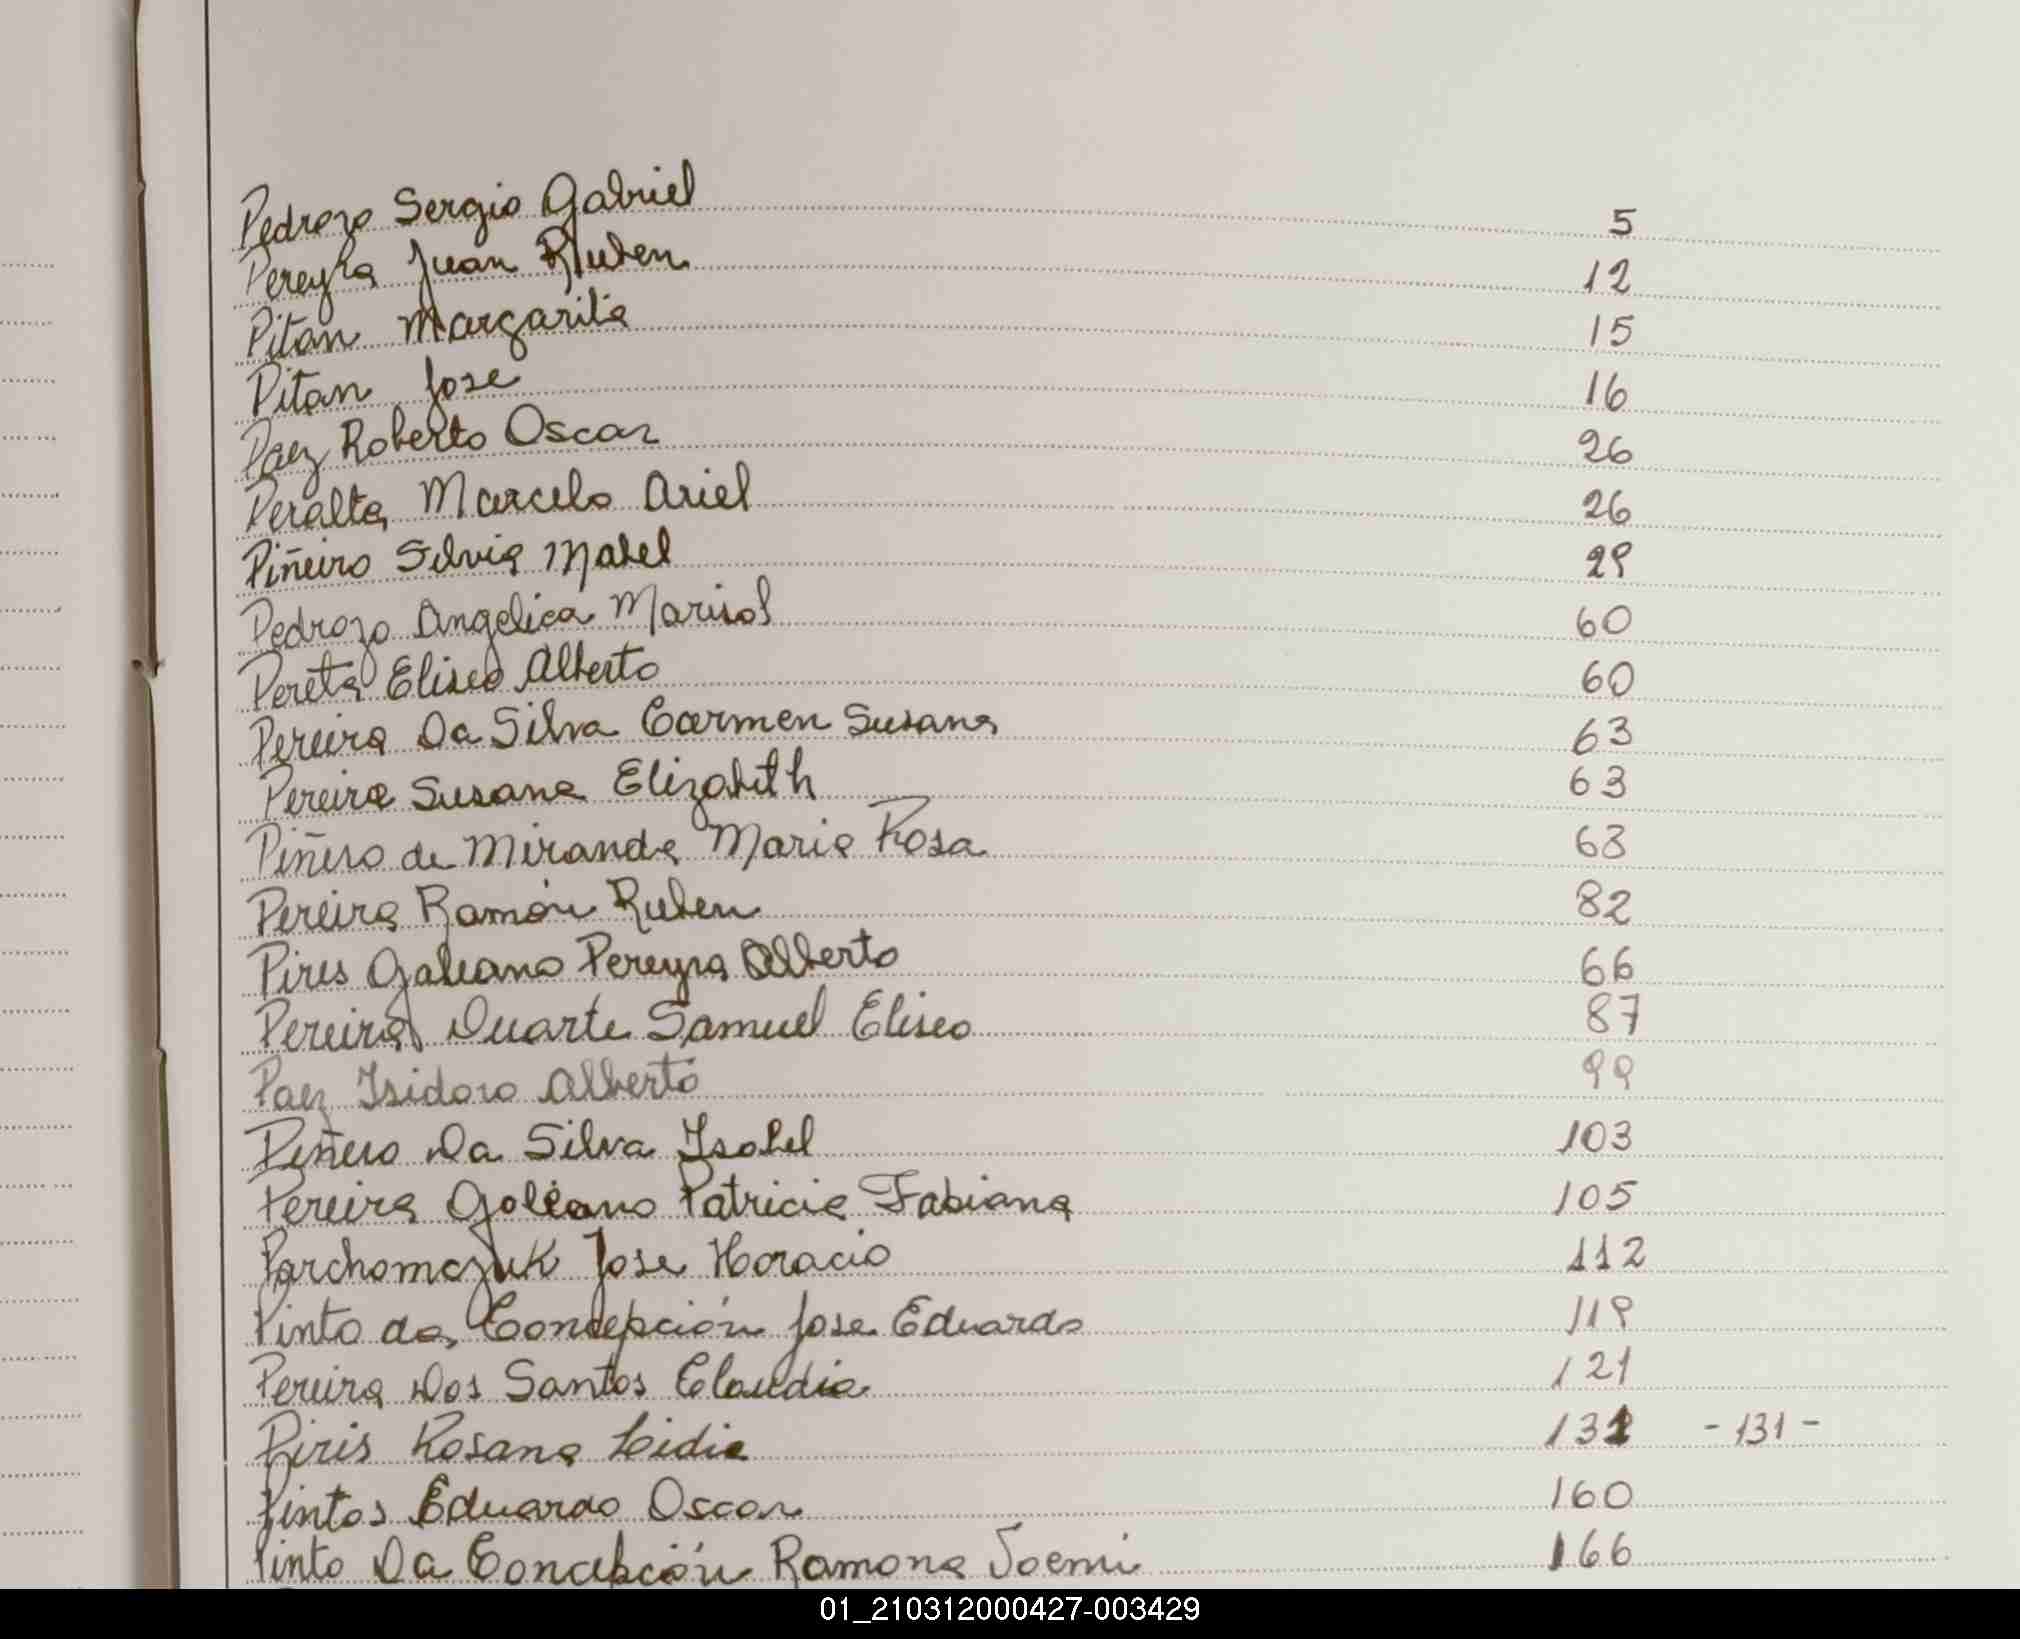 Pedrozo Sergio Gabriel 5
Pereyra Juan Ruben 12
Pitan Margarita 15
Pitan Jose 16
Paez Roberto Oscar 26
Peralta Marcelo Ariel 26
Piñeiro Silvia Mabel 29
Pedrozo Angelica Marisol 60
Pereta Eliseo Alberto 60
Pereira Da Silva Carmen Susana 63
Pereira Susana Elizabeth 63
Piñero de Miranda Maria Rosa 68
Pereira Ramón Ruben 82
Pires Galeano Pereyra Alberto 66
Pereira Duarte Samuel Eliseo 87
Paez Isidoro Alberto 99
Piñero Da Silva Isabel 103
Pereira Galeano Patricia Fabiana 105
Parchomczuk Jose Horacio 112
Pinto da Concepción Jose Eduardo 119
Pereira Dos Santos Claudia 121
Piris Rosana Lidia 131 - 131 -
Pintos Eduardo Oscar 160
Pinto Da Concepción Ramona Noemi 166
01_210312000427-003429